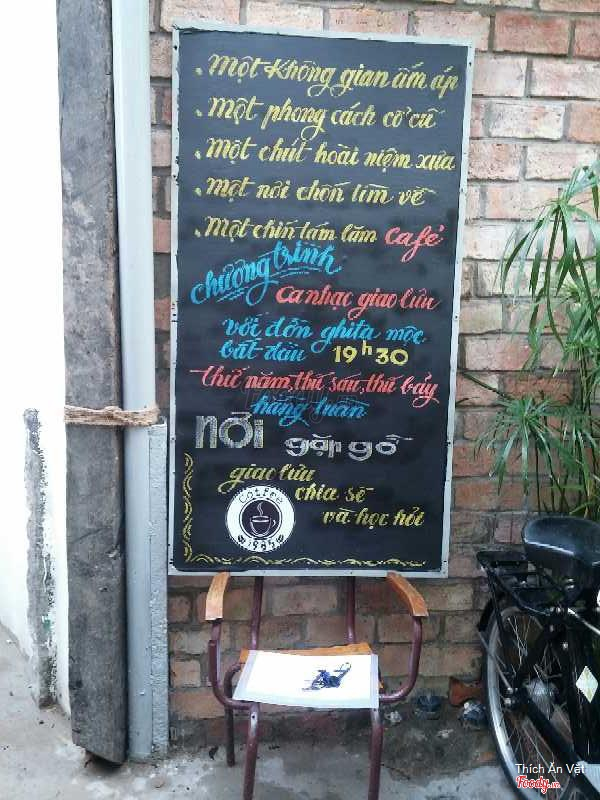 . Một không gian ấm áp
. Một phong cách cổ cũ
. Một chút hoài niệm xưa
. Một nơi chốn tìm về
. Một chín tám lăm Café
chương trình
ca nhạc giao lưu
với đờn ghita mộc
bắt đầu 19h30
thứ năm, thứ sáu, thứ bảy
hàng tuần
Nơi gặp gỡ
giao lưu
chia sẽ
và học hỏi
Coffee
1985
Thích Ăn Vặt
Foody.vn